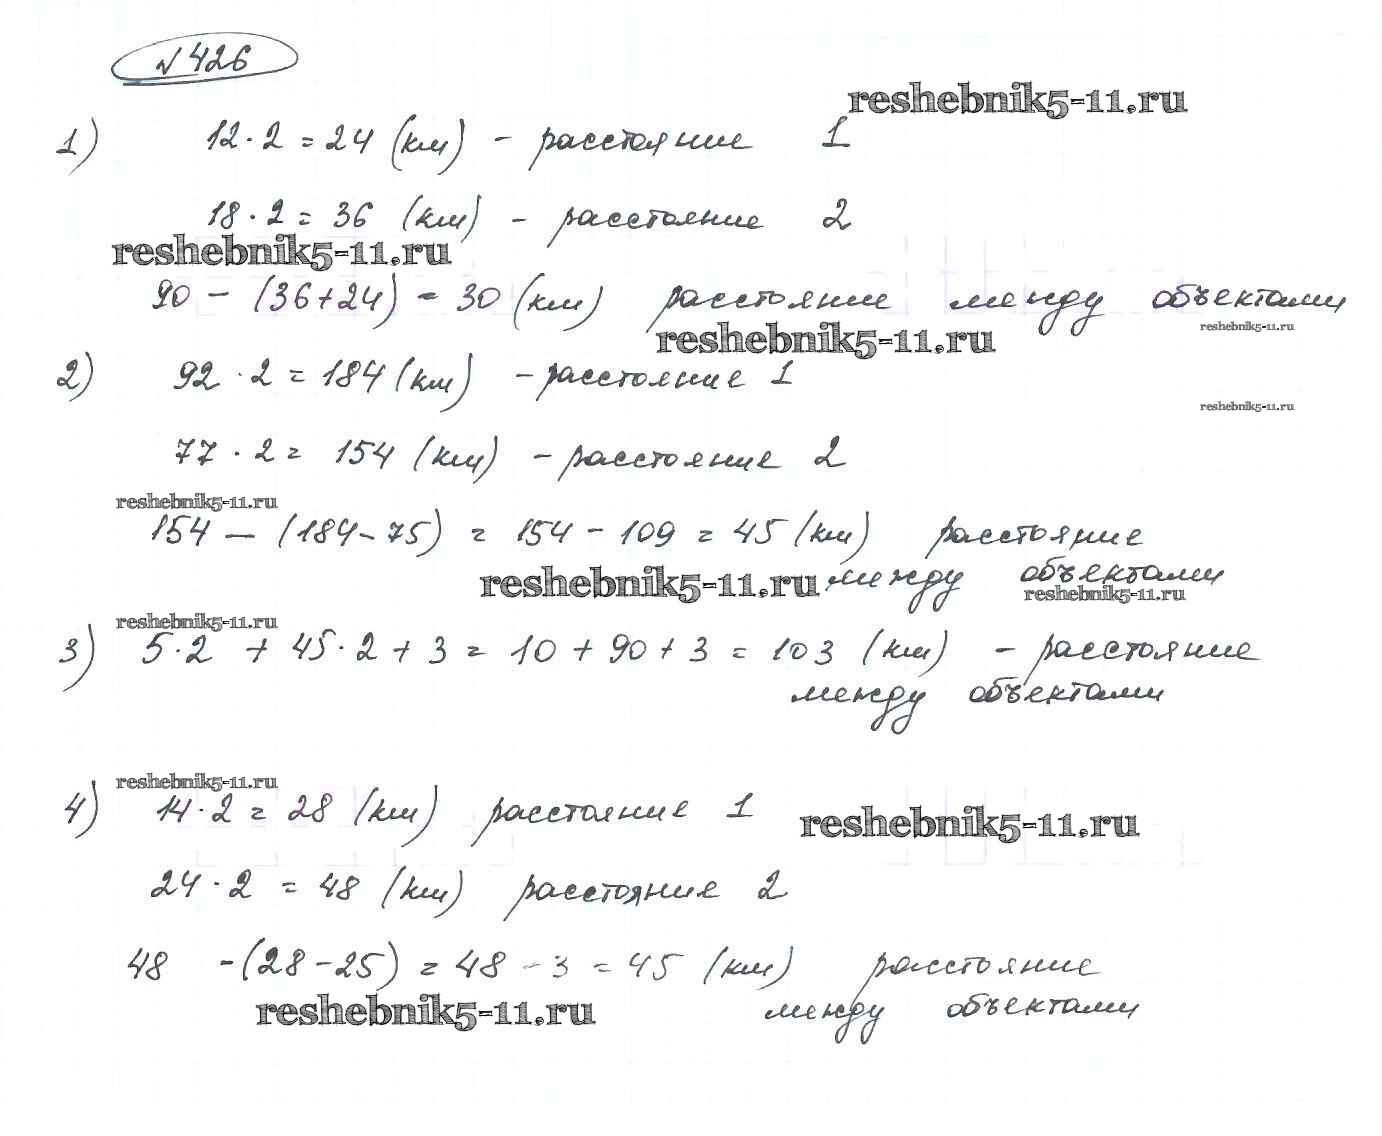 № 426
reshebnik5-11.ru
1) 12·2 = 24 (км) - расстояние 1
18·2 = 36 (км) - расстояние 2
reshebnik5-11.ru
90 - (36+24) = 30 (км) расстояние между объектами
reshebnik5-11.ru
reshebnik5-11.ru
2) 92·2 = 184 (км) - расстояние 1
reshebnik5-11.ru
77·2 = 154 (км) - расстояние 2
reshebnik5-11.ru
154 - (184-75) = 154 - 109 = 45 (км) расстояние
reshebnik5-11.ru между объектами
reshebnik5-11.ru
reshebnik5-11.ru
3) 5·2 + 45·2 + 3 = 10 + 90 + 3 = 103 (км) - расстояние
между объектами
reshebnik5-11.ru
4) 14·2 = 28 (км) расстояние 1
reshebnik5-11.ru
24·2 = 48 (км) расстояние 2
48 -(28-25) = 48 - 3 = 45 (км) расстояние
reshebnik5-11.ru между объектами